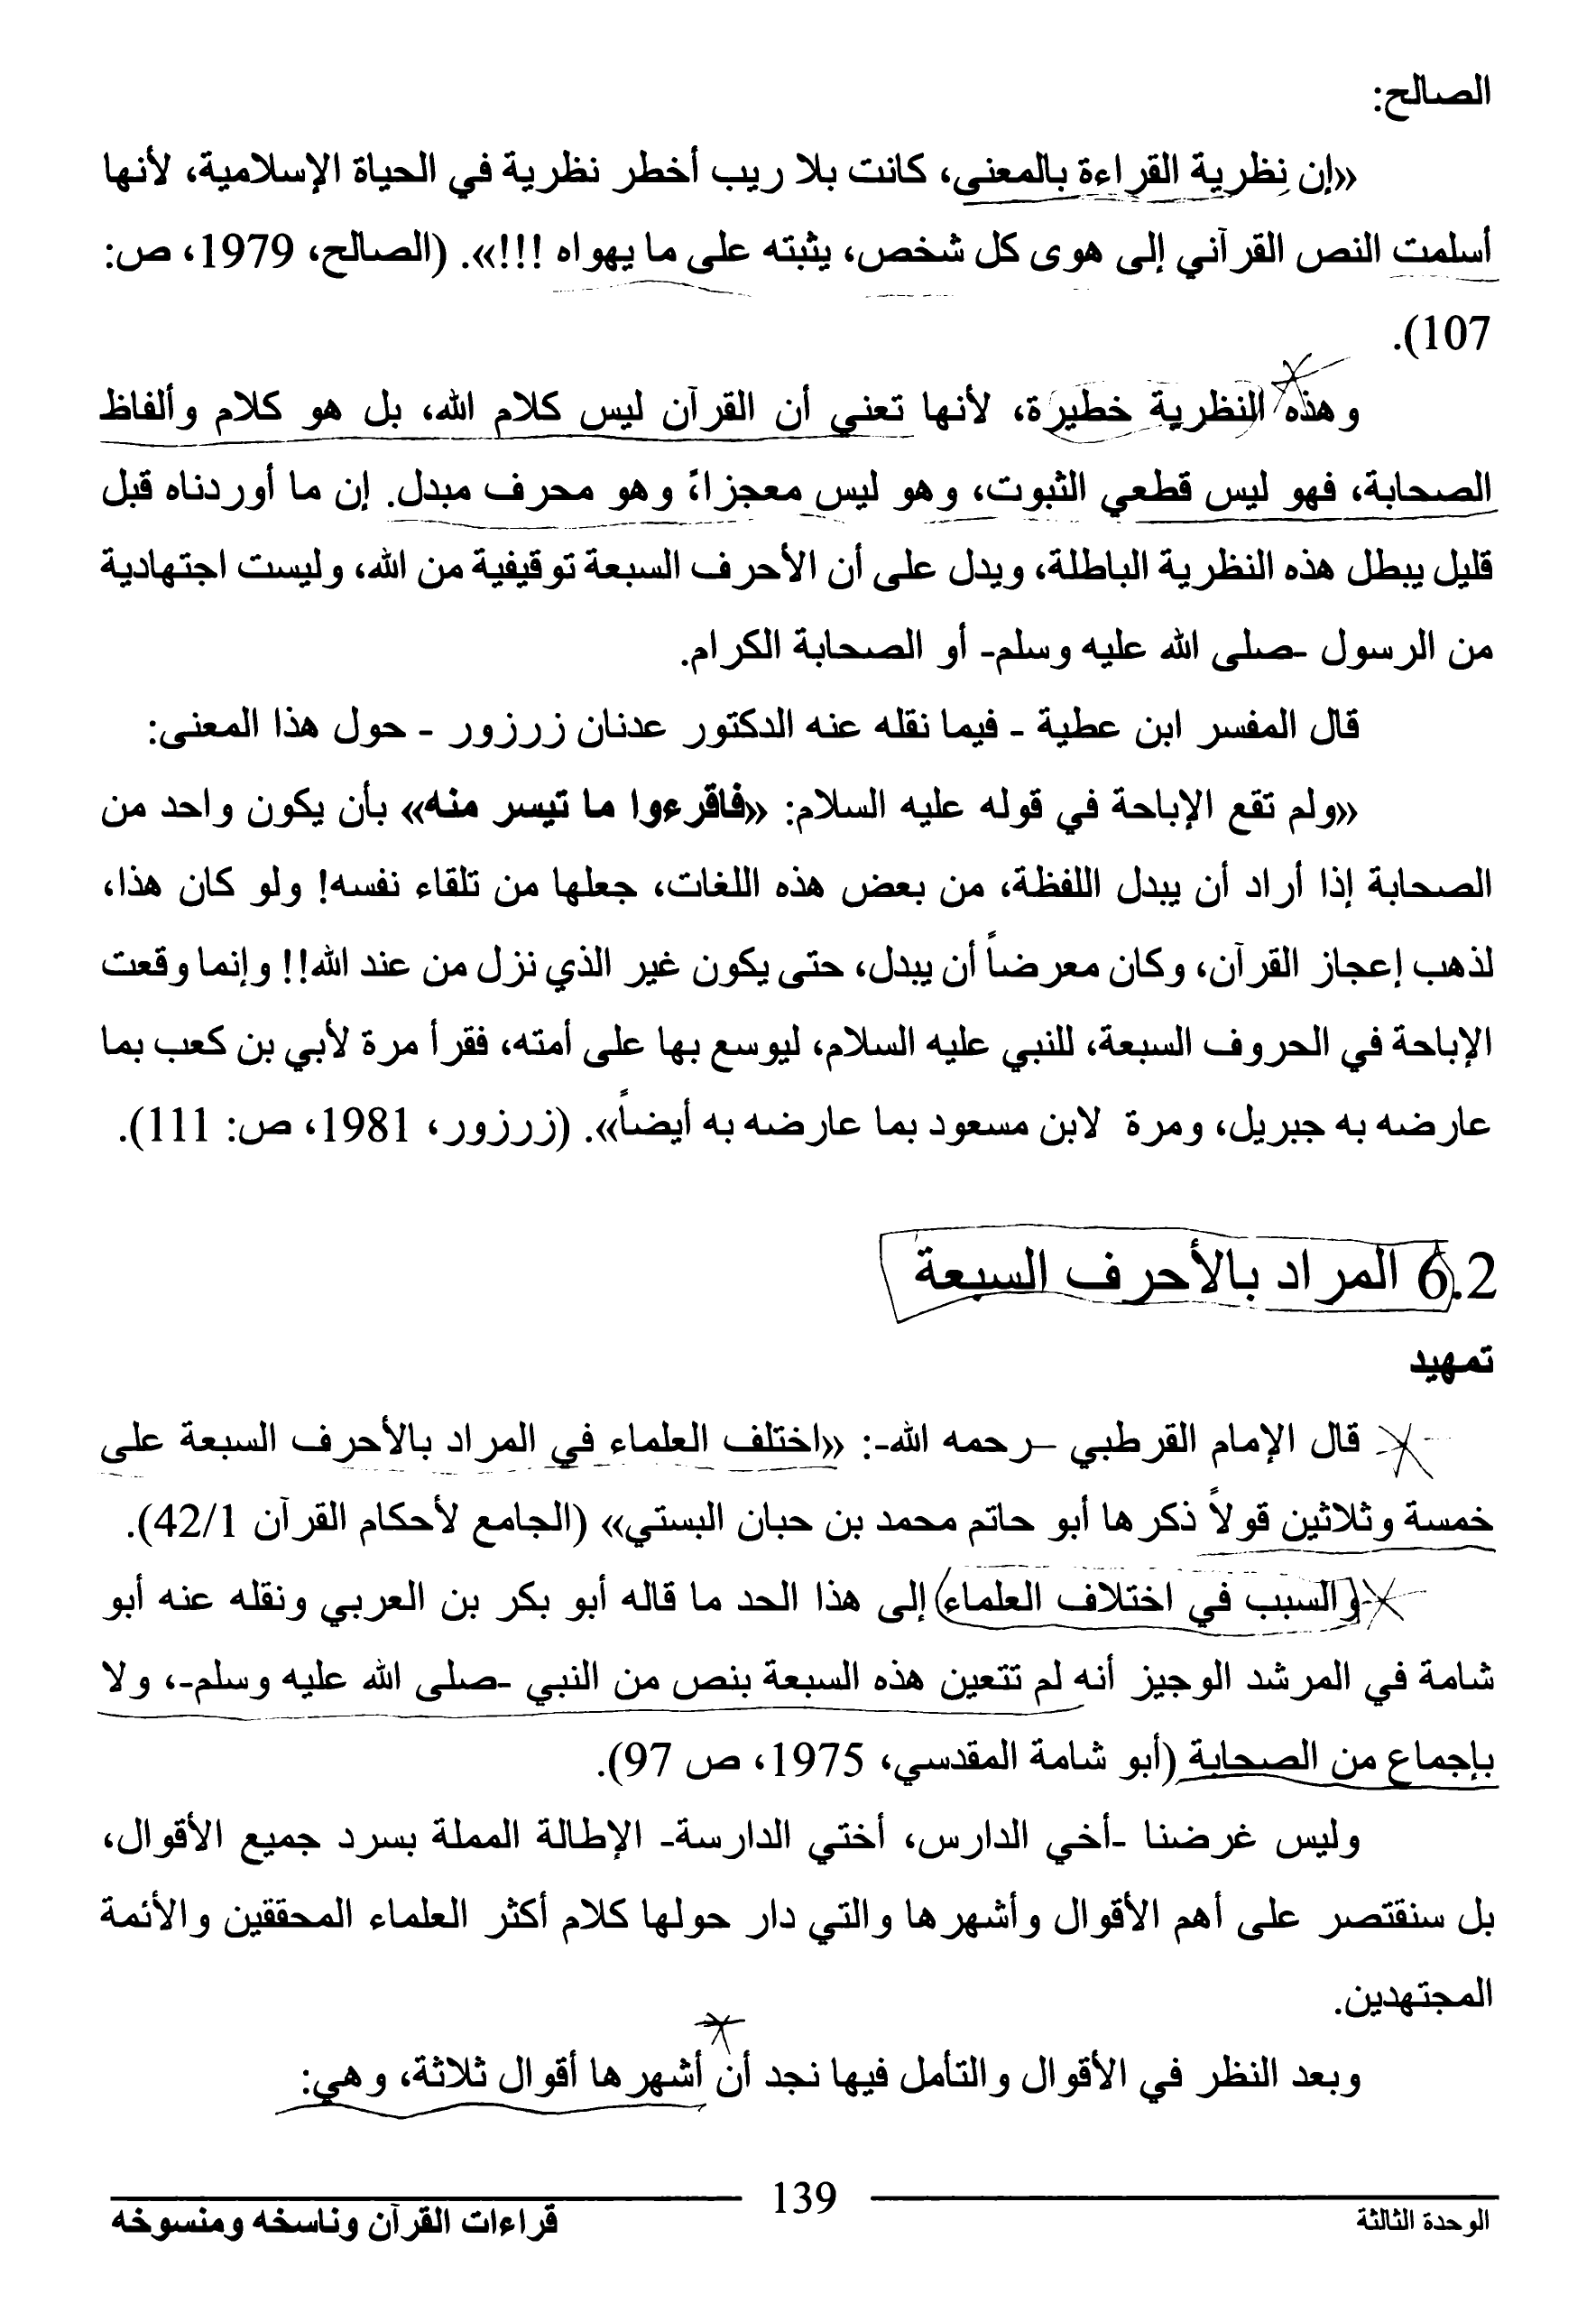 الصالح:
«إن نظرية القراءة بالمعنى، كانت بلا ريب أخطر نظرية في الحياة الإسلامية، لأنها
أسلمت النص القرآني إلى هوى كل شخص، يثبته على ما يهواه !!!». (الصالح، 1979، ص:
107).
وهذه النظرية خطيرة، لأنها تعني أن القرآن ليس كلام الله، بل هو كلام وألفاظ
الصحابة، فهو ليس قطعي الثبوت، وهو ليس معجزاً، وهو محرف مبدل. إن ما أوردناه قبل
قليل يبطل هذه النظرية الباطلة، ويدل على أن الأحرف السبعة توقيفية من الله، وليست اجتهادية
من الرسول -صلى الله عليه وسلم- أو الصحابة الكرام.
قال المفسر ابن عطية - فيما نقله عنه الدكتور عدنان زرزور - حول هذا المعنى:
«ولم تقع الإباحة في قوله عليه السلام: «فاقرءوا ما تيسر منه» بأن يكون واحد من
الصحابة إذا أراد أن يبدل اللفظة، من بعض هذه اللغات، جعلها من تلقاء نفسه! ولو كان هذا،
لذهب إعجاز القرآن، وكان معرضاً أن يبدل، حتى يكون غير الذي نزل من عند الله!! وإنما وقعت
الإباحة في الحروف السبعة، للنبي عليه السلام، ليوسع بها على أمته، فقرأ مرة لأبي بن كعب بما
عارضه به جبريل، ومرة لابن مسعود بما عارضه به أيضاً». (زرزور، 1981، ص: 111).
6.2 المراد بالأحرف السبعة
تمهيد
قال الإمام القرطبي –رحمه الله-: «اختلف العلماء في المراد بالأحرف السبعة على
خمسة وثلاثين قولاً ذكرها أبو حاتم محمد بن حبان البستي» (الجامع لأحكام القرآن 42/1).
والسبب في اختلاف العلماء إلى هذا الحد ما قاله أبو بكر بن العربي ونقله عنه أبو
شامة في المرشد الوجيز أنه لم تتعين هذه السبعة بنص من النبي -صلى الله عليه وسلم-، ولا
بإجماع من الصحابة (أبو شامة المقدسي، 1975، ص 97).
وليس غرضنا -أخي الدارس، أختي الدارسة- الإطالة المملة بسرد جميع الأقوال،
بل سنقتصر على أهم الأقوال وأشهرها والتي دار حولها كلام أكثر العلماء المحققين والأئمة
المجتهدين.
وبعد النظر في الأقوال والتأمل فيها نجد أن أشهرها أقوال ثلاثة، وهي:
الوحدة الثالثة 139 قراءات القرآن وناسخه ومنسوخه